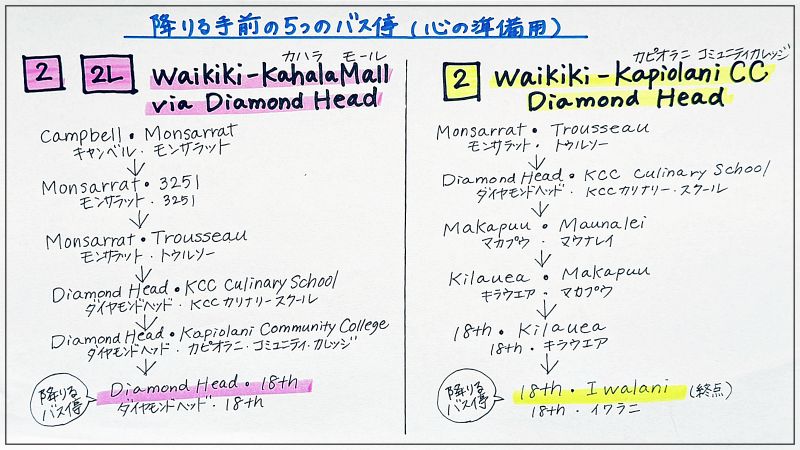 降りる手前の5つのバス停(心の準備用)
カハラ モール
2 2L Waikiki-Kahala Mall
via Diamond Head
Campbell・Monsarrat
キャンベル・モンサラット
Monsarrat・3251
モンサラット・3251
Monsarrat・Trousseau
モンサラット・トウルソー
Diamond Head・KCC Culinary School
ダイヤモンドヘッド・KCCカリナリースクール
Diamond Head・Kapiolani Community College
ダイヤモンドヘッド・カピオラニ・コミュニティ・カレッジ
降りる
バス停
Diamond Head・18th
ダイヤモンドヘッド・18th
カピオラニ コミュニティカレッジ
2 Waikiki-Kapiolani CC
Diamond Head
Monsarrat・Trousseau
モンサラット・トゥルソー
Diamond Head・KCC Culinary School
ダイヤモンドヘッド・KCCカリナリー・スクール
Makapuu・Maunalei
マカプウ・マウナレイ
Kilauea・Makapuu
キラウエア・マカプウ
18th・Kilauea
18th・キラウエア
降りる
バス停
18th・Iwalani (終点)
18th・イワラニ